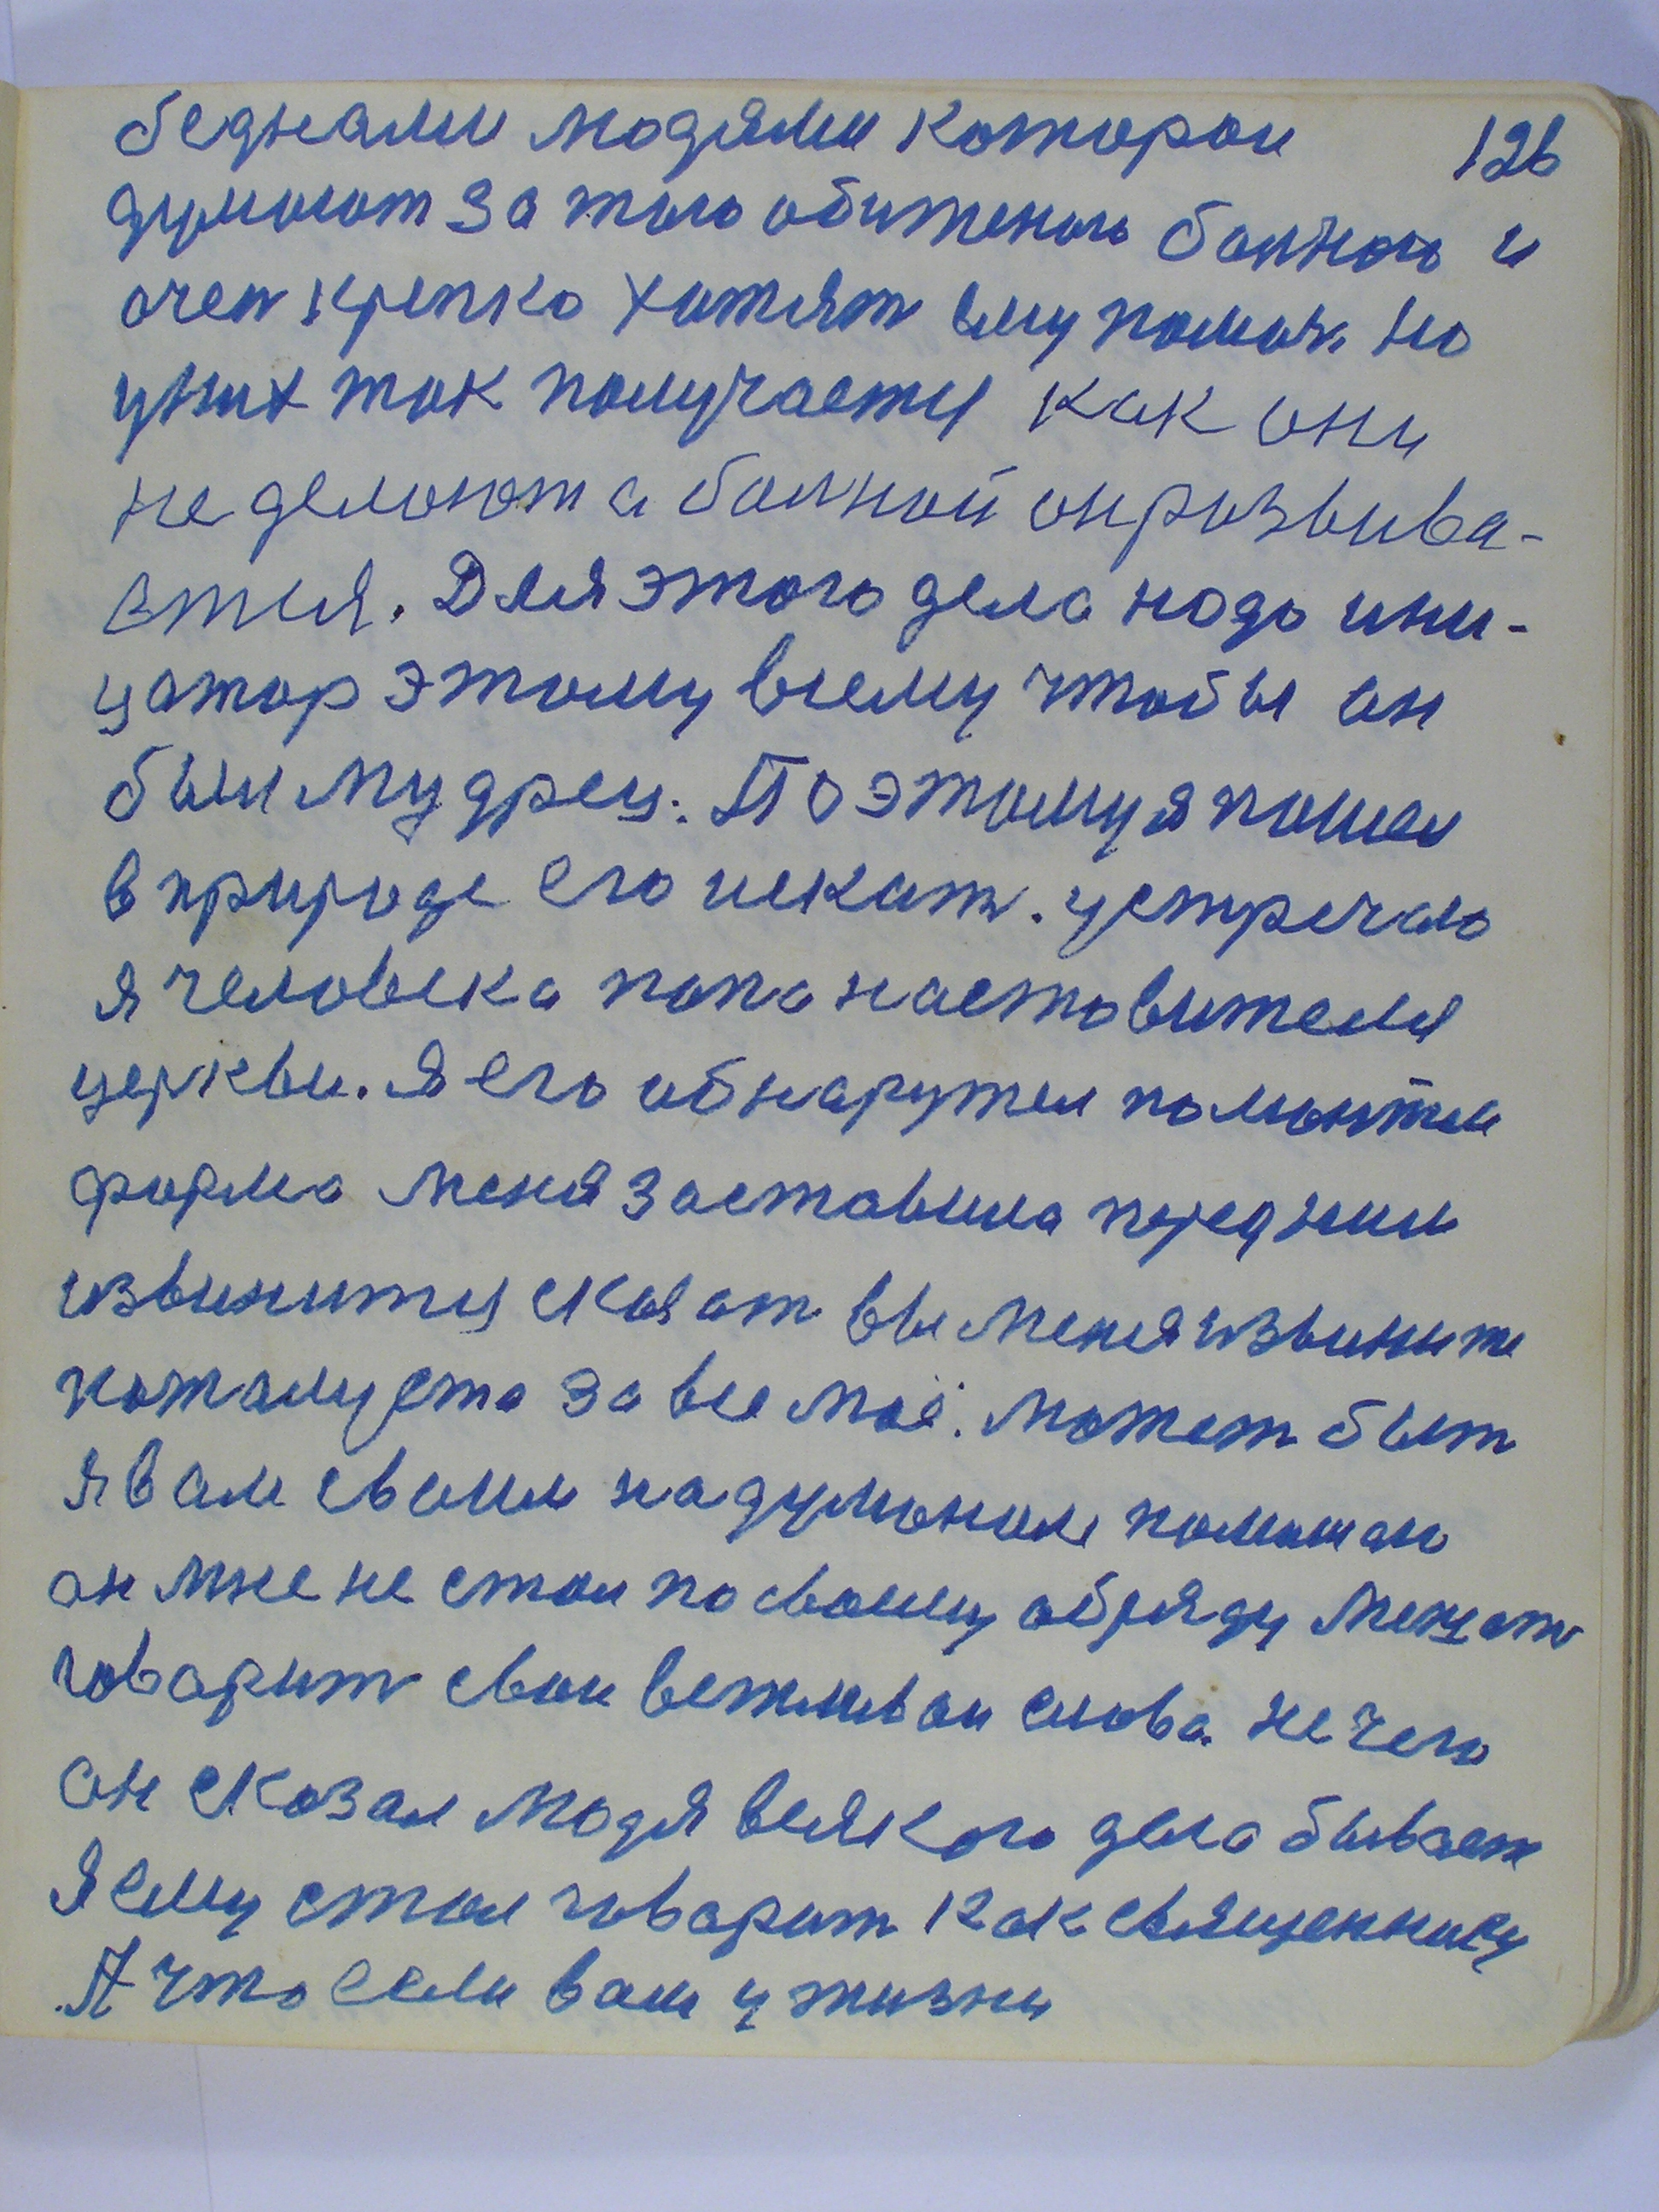 126
беднами людями которои
думают за того обиженого болного и
очен крепко хотят ему помоч. но
у них так получается как они
не делают а болной он развива-
ется. Для этого дела надо ини-
циатор этому всему чтобы он
был мудрец. Поэтому я пошел
в природе его искат. устречаю
я человека попа наставителя
церкви. Я его обнаружел по мантии
форма меня заставила перед ним
извинится сказат вы меня извините
пожалуста за все моё. может быт
я вам своим надуманием помешаю
он мне не стал по своему обряду мешат
говорит свои вежливаи слова. не чего
он сказал людя всякого дела бывает
Я ему стал говорит как священнику
А что если вам у жизни